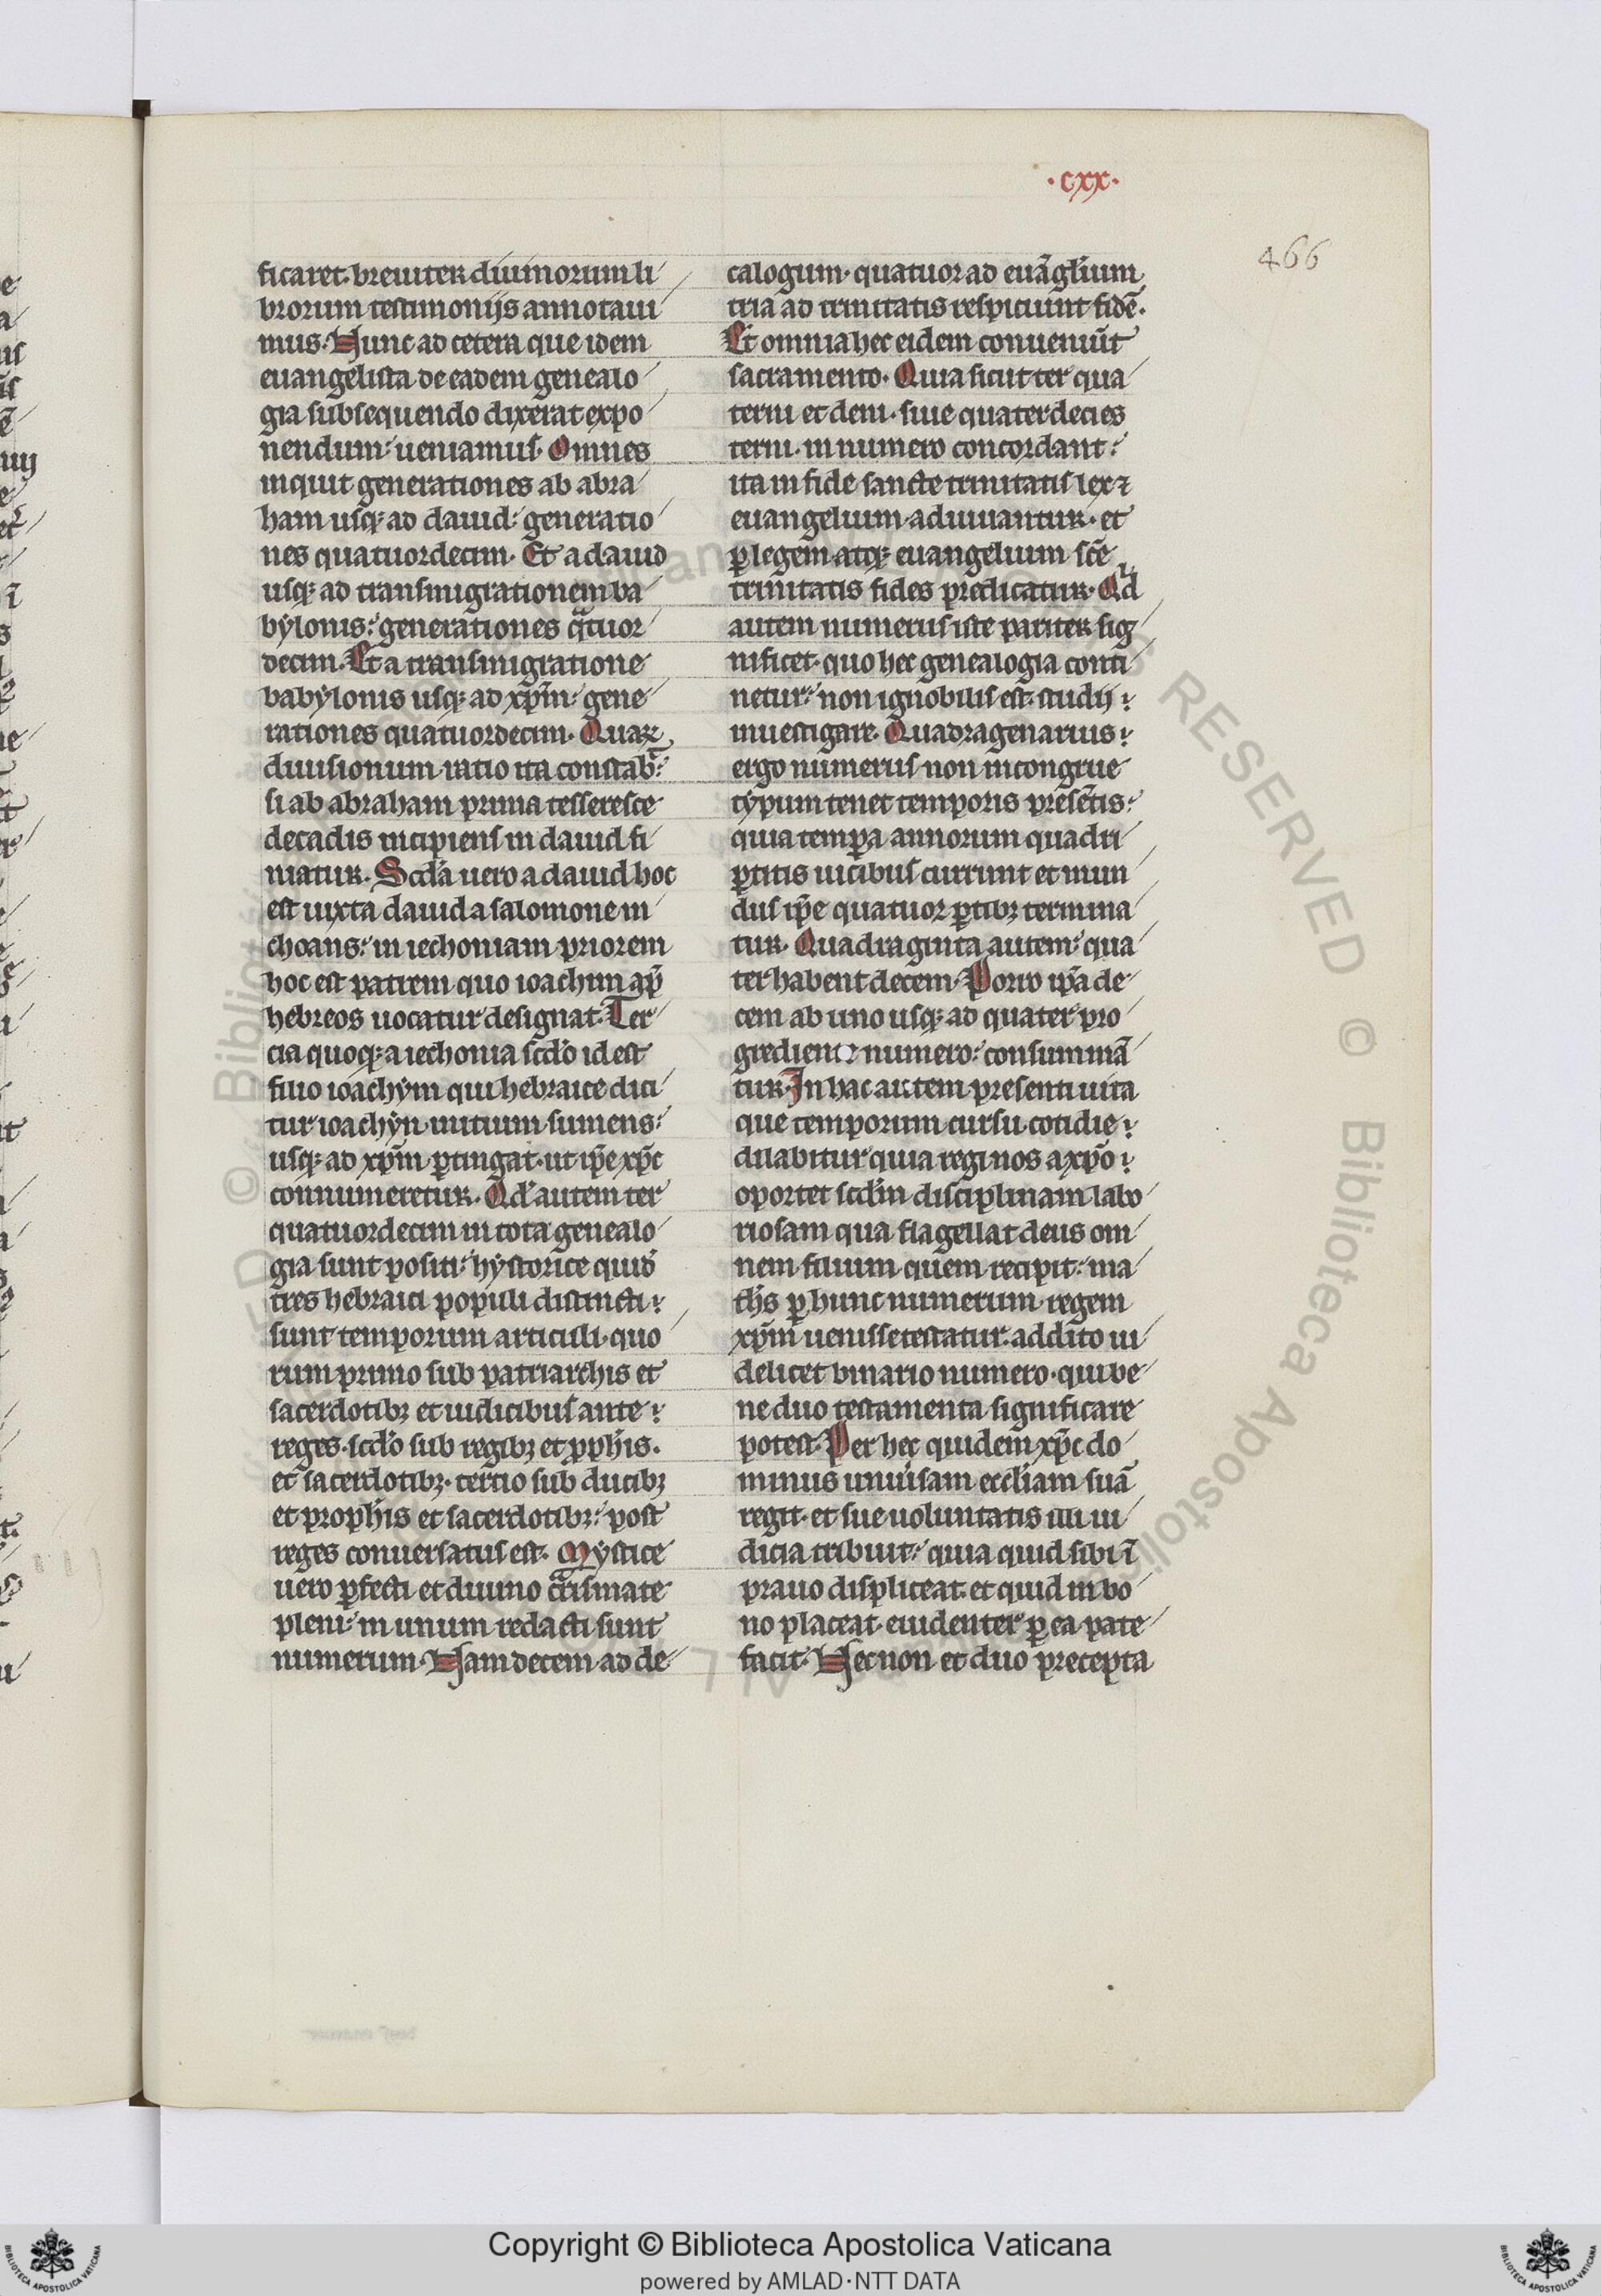 ·cxx·
466
ficaret· breuiter diuinorum li
brorum testimonijs annotaui
mus· Nunc ad cetera que idem
euangelista de eadem genealo
gia subsequendo dixerat expo
nendum· ueniamus· Omnes
inquit generationes ab abra
ham usq; ad dauid· generatio
nes quatuordecim· Et a dauid
usq; ad transmigrationem ba
bylonis· generationes qͣtuor
decim· Et a transmigratione
babylonis usq; ad xp̄m· gene
rationes quatuordecim· Quaꝝ
diuisionum ratio ita constab̄·
si ab abraham prima tesseresce
decadis incipiens in dauid fi
niatur· Scd̄a uero a dauid hoc
est iuxta dauid a salomone in
choans· in iechoniam priorem
hoc est patrem quo ioachim ap̄
hebreos uocatur designat· Ter
cia quoq; a iechonia scd̄o id est
filio ioachym qui hebraice dici
tur ioachyn initium sumens·
usq; ad xp̄m ꝑtingat· ut ip̄e xp̄c
connumeretur· Qd̄ autem ter
quatuordecim in tota genealo
gia sunt positi· hystorice quid̓
tres hebraici populi distincti
sunt temporum articuli· quo
rum primo sub patriarchis et
sacerdotibꝫ et iudicibus ante
reges· scd̄o sub regibꝫ et ꝓph̄is·
et sacerdotibꝫ· tertio sub ducibꝫ
et proph̄is et sacerdotibꝫ· post
reges conuersatus est· Mystice
uero ꝑfecti et diuino crͣismate
pleni· in unum redacti sunt
numerum· Nam decem ad de
calogum· quatuor ad euāgl̄ium
tria ad trinitatis respiciunt fidē·
Et omnia hec eidem conueniūt
sacramento· Quia sicut ter qua
terni et deni· siue quaterdecies
terni· in numero concordant·
ita in fide sancte trinitatis lex ⁊
euangelium adiuuantur· et
ꝑ legem atq; euangelium sc̄e
trinitatis fides predicatur· Qd
autem numerus iste pariter sig
nificet· quo hec genealogia conti
netur· non ignobilis est studij
inuestigare· Quadragenarius
ergo numerus non incongrue
typum tenet temporis presētis·
quia temꝑa annorum quadri
ꝑtitis uicibus currunt et mun
dus ip̄e quatuor ꝑtibꝫ termina
tur· Quadraginta autem· qua
ter habent decem· Porro ip̄a de
cem ab uno usq; ad quater pro
grediente numero· consummā
tur· In hac autem presenti uita
que temporum cursu cotidie
dilabitur quia regi nos a xp̄o
oportet scd̄m disciplinam labo
riosam qua flagellat deus om
nem filium quem recipit· ma
th̄s ꝑ hunc numerum regem
xp̄m uenisse testatur· addito ui
delicet binario numero· qui be
ne duo testamenta significare
potest· Per hec quidem xp̄c do
minus uniu̓sam eccl̄iam suā
regit· et sue uoluntatis illi iu
dicia tribuit· quia quid sibi ī
prauo displiceat· et quid in bo
no placeat· euidenter ꝑ ea pate
facit· Nec non et duo precepta
Copyright © Biblioteca Apostolica Vaticana
powered by AMLAD·NTT DATA